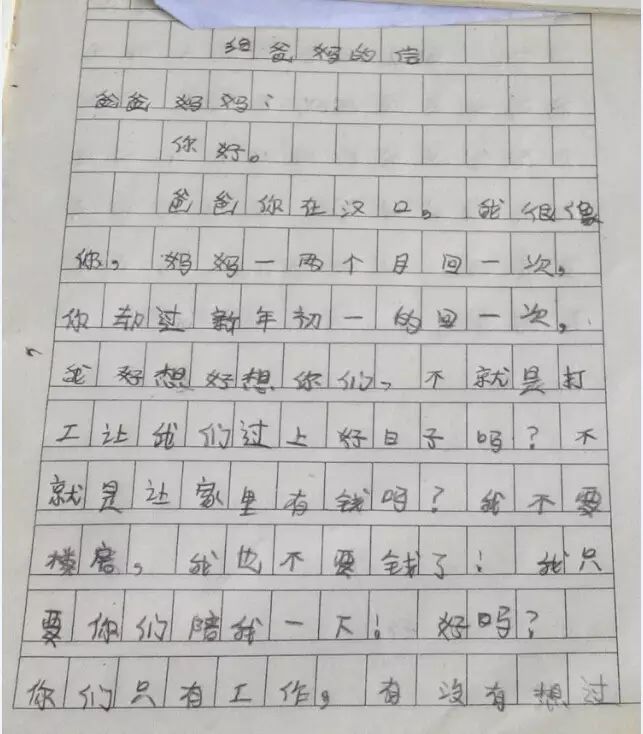 给爸妈的信
爸爸妈妈：
你好。
爸爸你在汉口。我很想
你，妈妈一两个月回一次，
你却过新年初一的回一次，
我好想好想你们，不就是打
工让我们过上好日子吗？不
就是让家里有钱吗？我不要
楼房，我也不要钱了！我只
要你们陪我一天！好吗？
你们只有工作，有没有想过